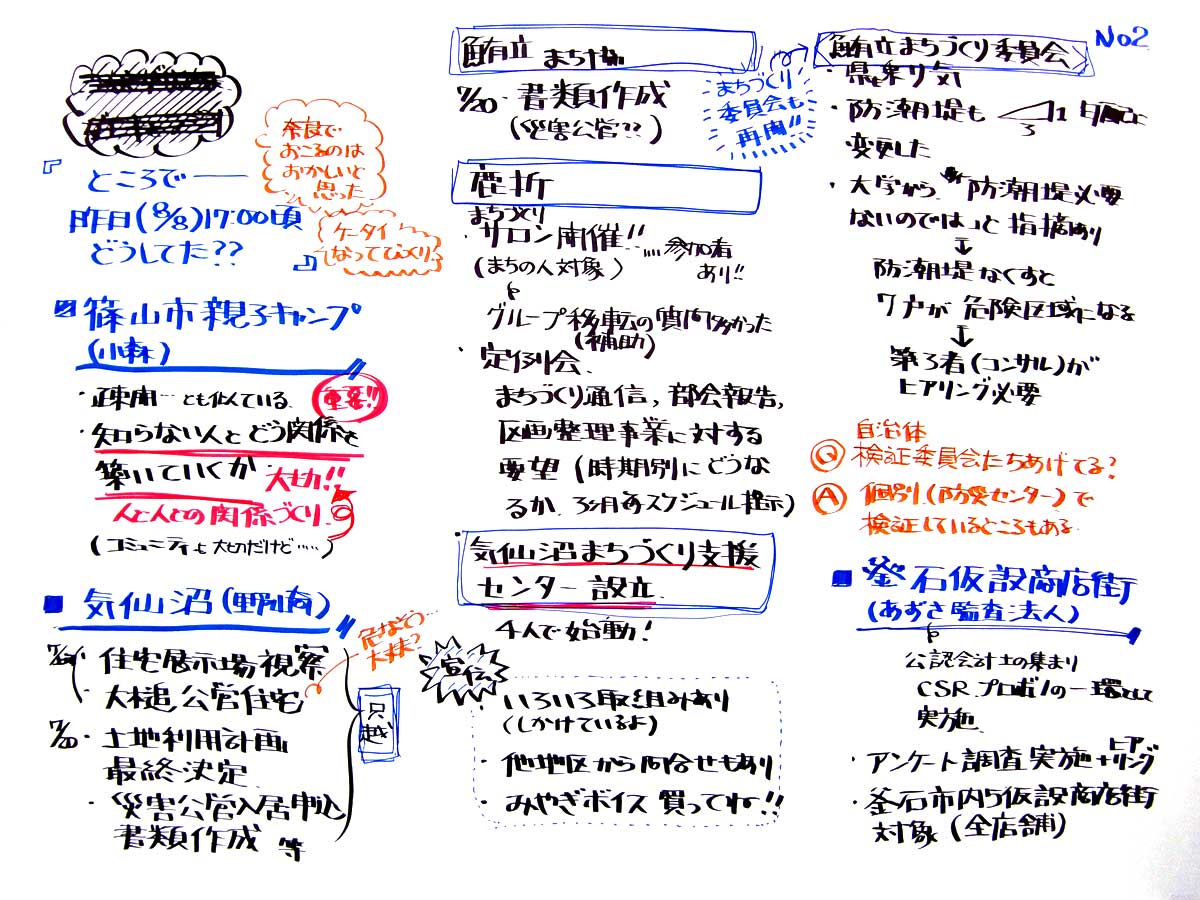 No2
『ところで――
昨日(8/8)17:00頃
どうしてた??』
奈良で
おこるのは
おかしいと
思った
ケータイ
なってびっくり!
篠山市親子キャンプ
(小森)
・疎開…とも似ている
重要!!
・知らない人とどう関係を
築いていくか 大切!!
人と人との関係づくり
(コミュニティも大切だけど……)
■ 気仙沼(野崎)
・住宅展示場視察
・大槌公営住宅
危なそう…
大丈夫?
・土地利用計画
最終決定
・災害公営入居申込
書類作成 等
只越
鮪立 まち協
7/20・書類作成
(災害公営??)
まちづくり
委員会も
再開!!
鹿折
まちづくり
・サロン開催!! …… 参加者
あり!!
(まちの人対象)
グループ移転の質問多かった
(補助)
・定例会
まちづくり通信, 部会報告,
区画整理事業に対する
要望(時期別にどうな
るか、3ヶ月毎スケジュール提示)
・気仙沼まちづくり支援
センター設立
4人で始動!
宣伝
・いろいろ取組みあり
(しかけているよ)
・他地区から問合せもあり
・みやぎボイス買ってね!!
鮪立まちづくり委員会
・県も乗り気
・防潮堤も 1 3
変更した
・大学から「防潮堤必要
ないのでは」と指摘あり
↓
防潮堤なくすと
7戸が危険区域になる
↓
第3者(コンサル)が
ヒアリング必要
自治体
Q 検証委員会たちあげてる?
A 個別(防災センター)で
検証しているところもある
■ 釜石仮設商店街
(あずさ監査法人)
公認会計士の集まり
CSRプロボノの一環として
実施
・アンケート調査実施+ヒアリング
・釜石市内の仮設商店街
対象(全店舗)